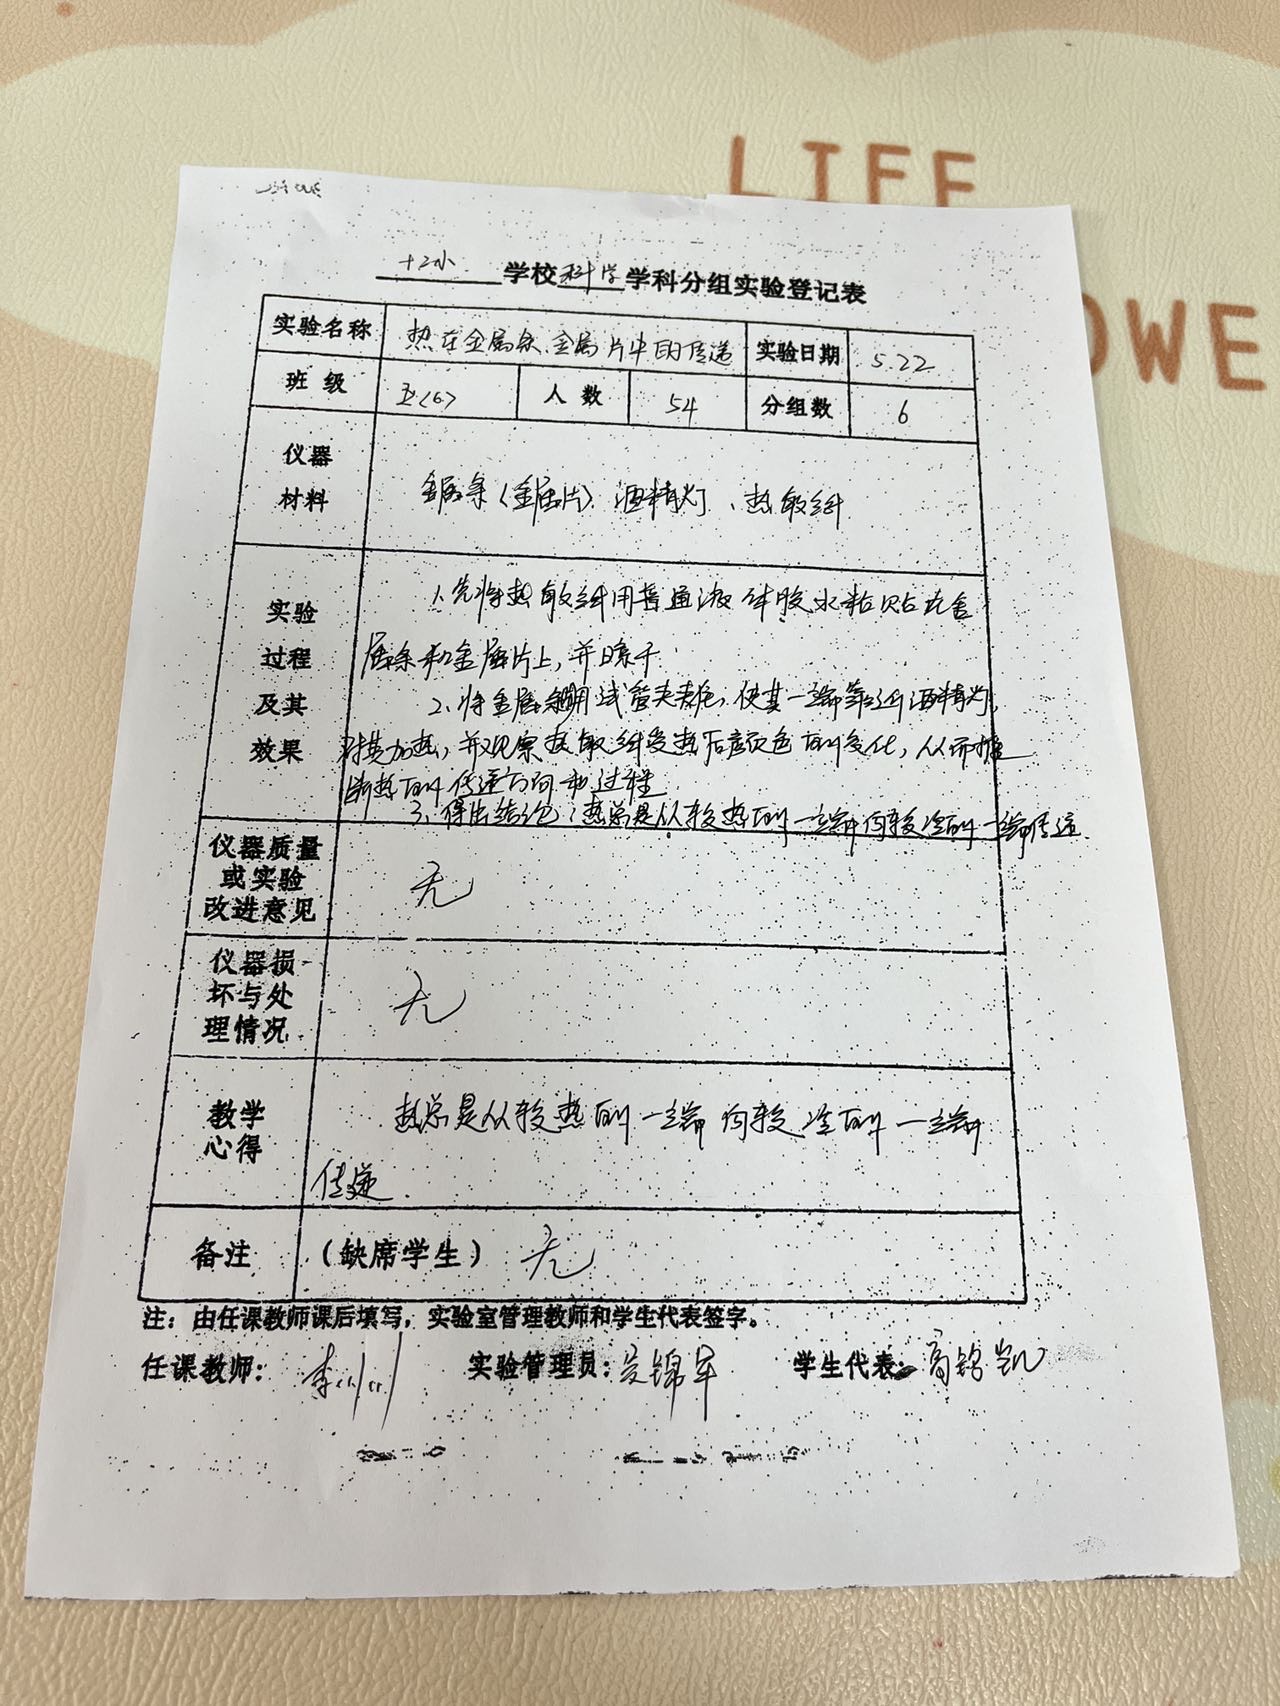 LIFE
OWE
十2小 学校 科学 学科分组实验登记表
实验名称 热在金属条、金属片中的传递 实验日期 5.22
班 级 五(6) 人 数 54 分组数 6
仪器
材料
金属条(金属片)、酒精灯、热敏纸
实验
过程
及其
效果
1.先将热敏纸用普通液体胶水粘贴在金
属条和金属片上,并晾干.
2、将金属条用试管夹夹住,使其一端靠近酒精灯,
对其加热,并观察热敏纸受热后颜色的变化,从而推
断热的传递方向和过程
3、得出结论:热总是从较热的一端向较冷的一端传递
仪器质量
或实验
改进意见
无
仪器损
坏与处
理情况
无
教学
心得
热总是从较热的一端向较冷的一端
传递.
备注 (缺席学生) 无
注:由任课教师课后填写,实验室管理教师和学生代表签字。
任课教师: 实验管理员:吴锦军 学生代表:高锦凯